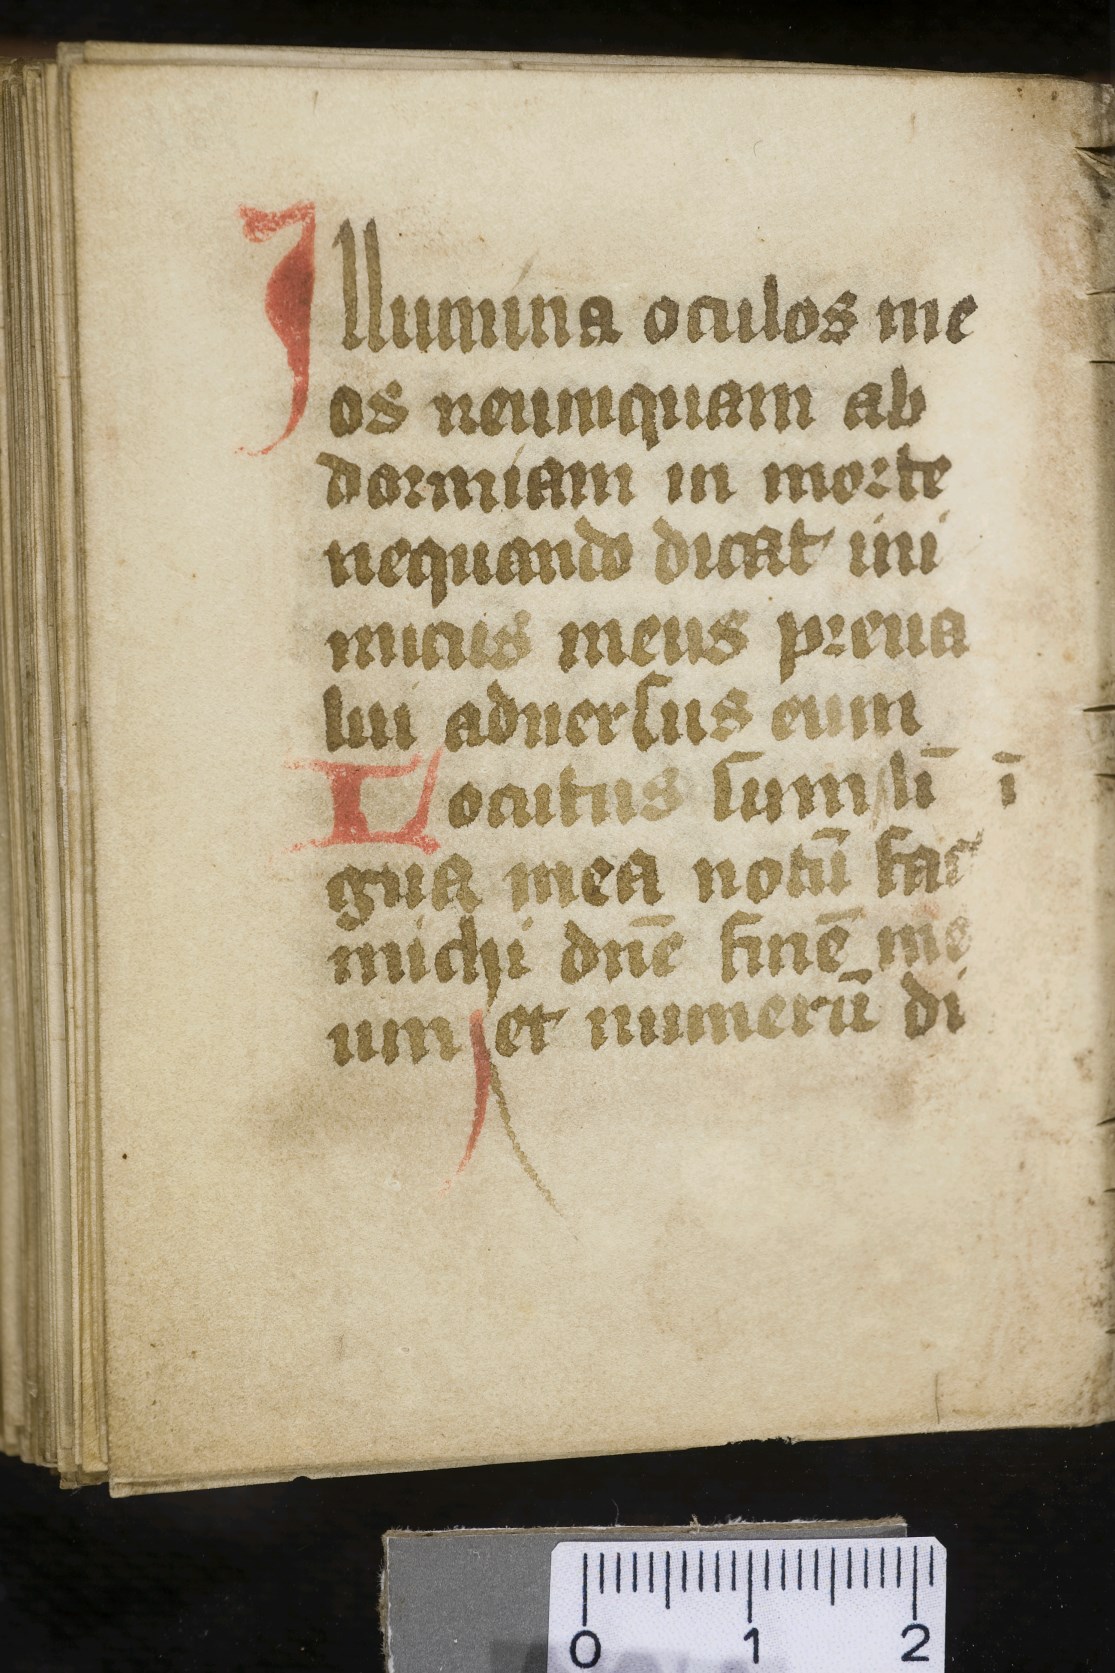 Illumina oculos me
os neumquam ab
dormiam in morte
nequando dicat ini
micus meus preua
lui aduersus eum
Locutus sum lī ī
gua mea notū fac
michi dnē finē me
um et numerū di
0 1 2